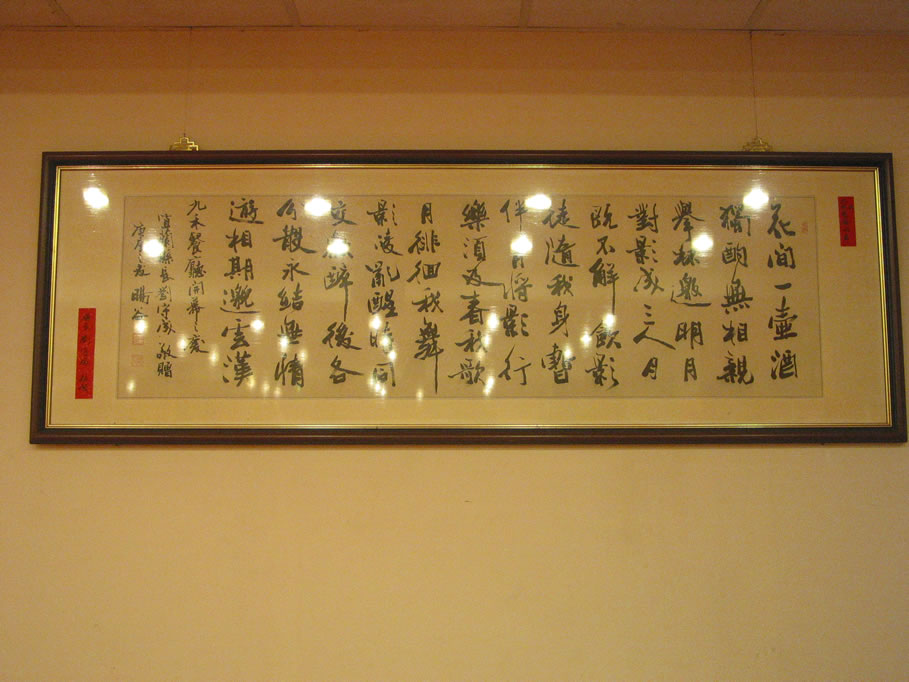 花間一壺酒
獨酌無相親
舉杯邀明月
對影成三人月
既不解飲影
徒隨我身暫
伴月將影行
樂須及春我歌
月徘徊我舞
影凌亂醒時同
交歡醉後各
分散永結無情
遊相期邈雲漢
九禾餐廳開幕之慶
宜蘭縣長劉守成敬贈